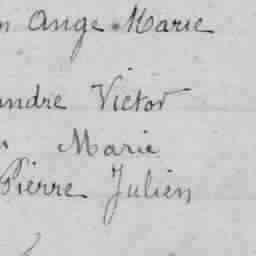 Ange Marie
Victor
Marie
Pierre Julien